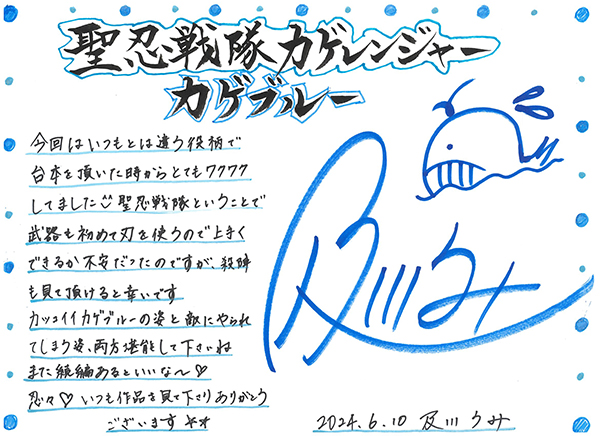 聖忍戦隊カゲレンジャー
カゲブルー
今回はいつもとは違う役柄で
台本を頂いた時からとてもワクワク
してました 聖忍戦隊ということで
武器も初めて刃を使うので上手く
できるか不安だったのですが、殺陣
も見て頂けると幸いです
カッコイイカゲブルーの姿と敵にやられ
てしまう姿、両方堪能して下さいね
また続編あるといいな〜♡
忍々♡ いつも作品を見て下さりありがとう
ございます
及川うみ
2024.6.10 及川うみ